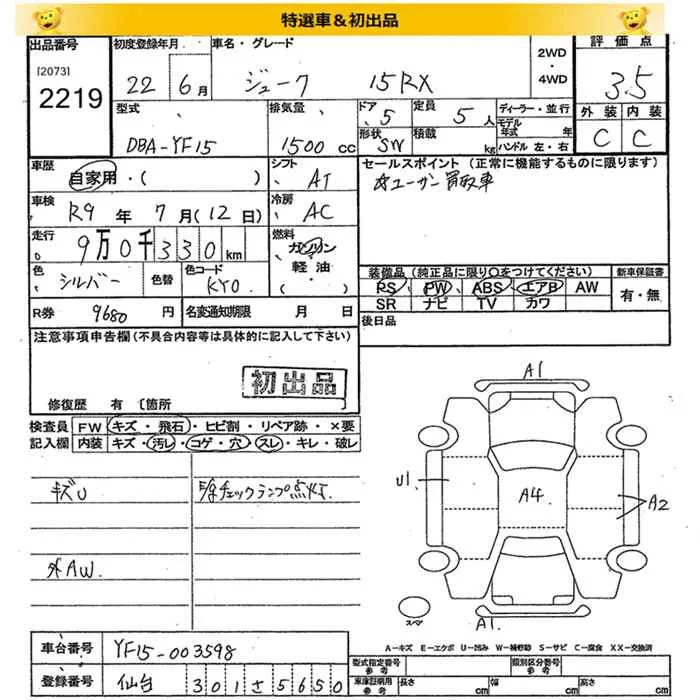 特選車&初出品
出品番号 初度登録年月 車名・グレード 2WD・4WD 評価点
[2073]
2219 22年6月 ジューク 15RX 3.5
型式 排気量 ドア 定員 ディーラー・並行 外装 内装
DBA-YF15 1500cc 5 5人 モデル年式 年 C C
形状 SW 積載 kg ハンドル 左・右
車歴 シフト セールスポイント (正常に機能するものに限ります)
自家用・( ) AT ☆ユーザー買取車
車検 冷房
R9年7月(12日) AC
走行 燃料
9万0千330km ガソリン
軽油・( )
色 色替 色コード 装備品(純正品に限り○をつけてください) 新車保証書
シルバー KY0 PS PW ABS エアB AW 有・無
SR ナビ TV カワ
R券 9680円 名変通知期限 月 日 後日品
注意事項申告欄(不具合内容等は具体的に記入して下さい)
初出品
修復歴 有 [箇所
検査員 FW キズ・飛石・ヒビ割・リペア跡・×要
記入欄 内装 キズ・汚レ・コゲ・穴・スレ・キレ・破レ
キズU チェックランプ点灯.
外AW.
A1
U1
A4
A2
スペア
A1.
A−キズ E−エクボ U−凹み W−補修跡 S−サビ C−腐食 XX−交換済
車台番号 YF15-003598 型式指定番号 参考 類別区分番号 参考
登録番号 仙台 301 さ 5650 車庫証明用 参考 長さ cm 幅 cm 高さ cm